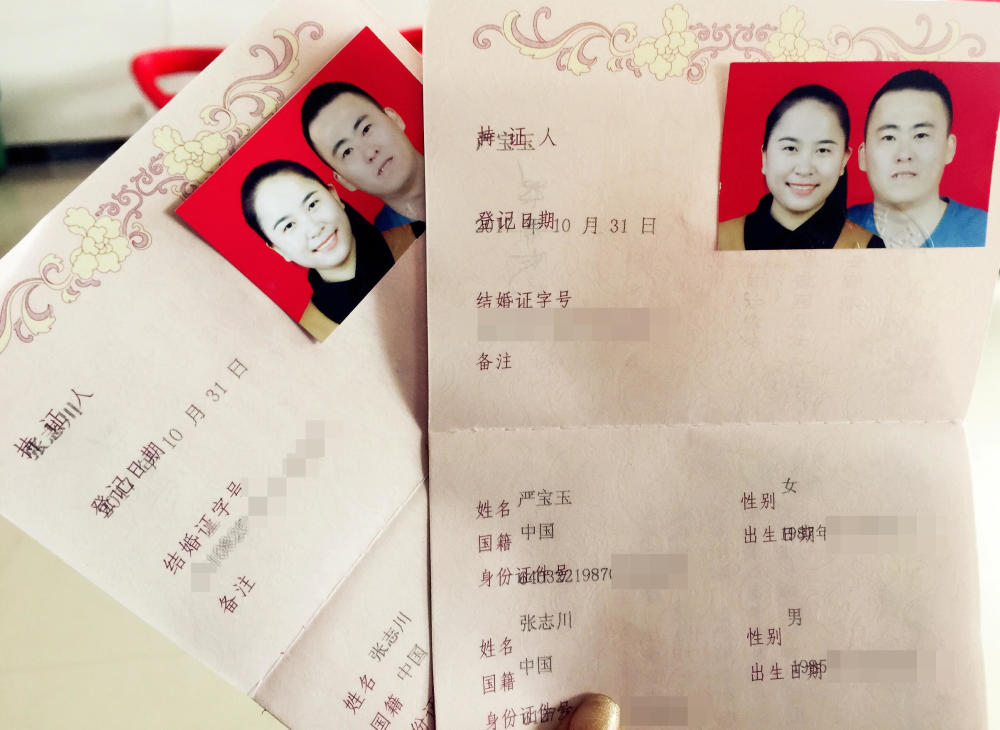 持证人
张志川
登记日期
10 月 31 日
结婚证字号
备注
姓名 张志川
国籍 中国
持证人
严宝玉
登记日期
2017 年 10 月 31 日
结婚证字号
备注
姓名 严宝玉 性别 女
国籍 中国 出生日期
身份证件号
姓名 张志川 性别 男
国籍 中国 出生日期 1985
身份证件号